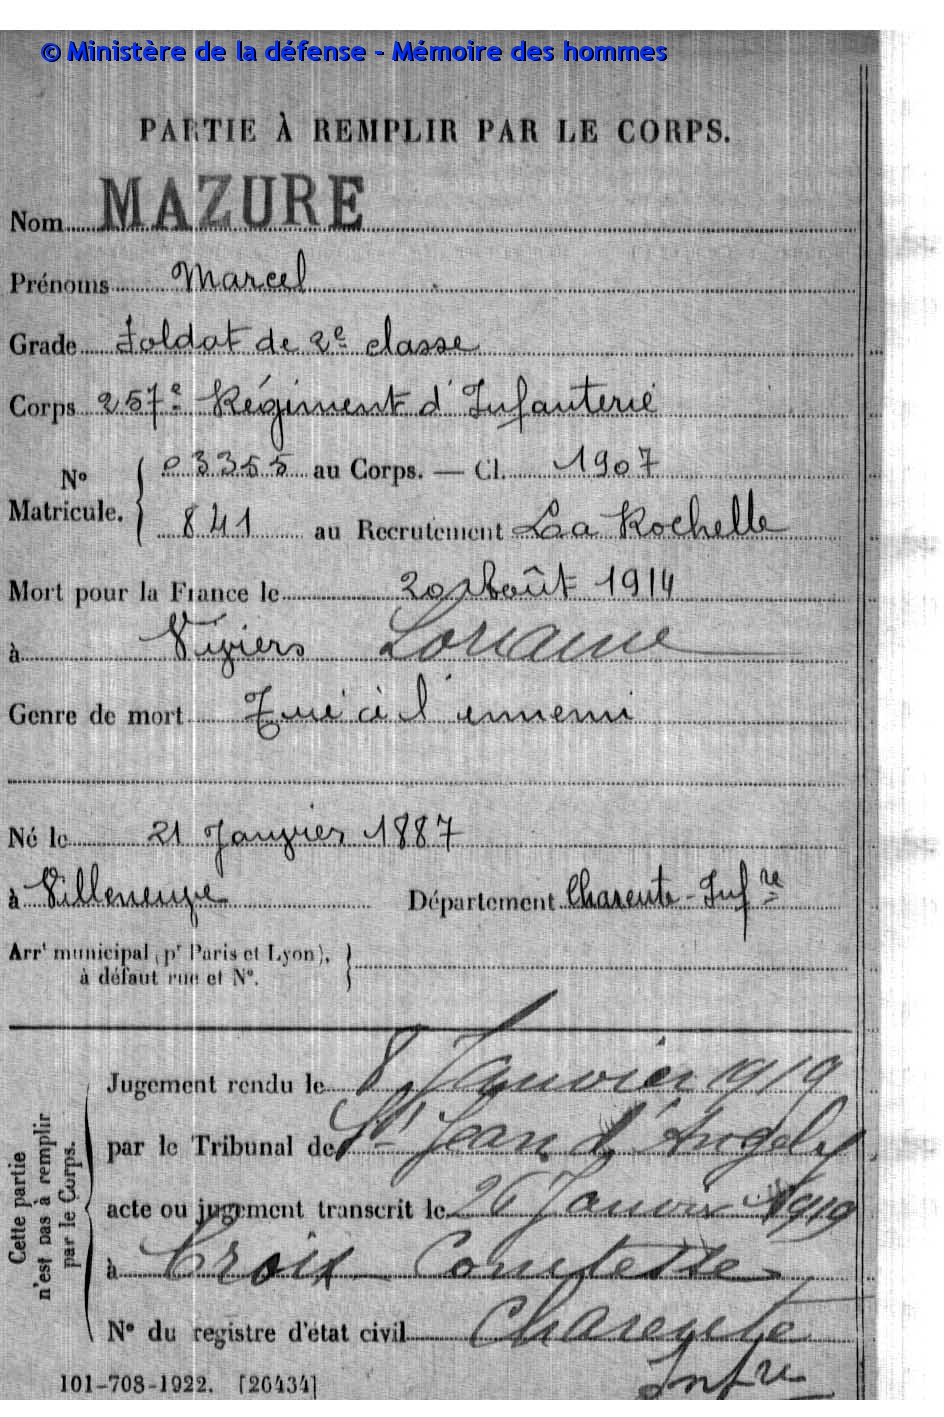 © Ministère de la défense - Mémoire des hommes
PARTIE À REMPLIR PAR LE CORPS.
Nom MAZURE
Prénoms Marcel
Grade Soldat de 2e classe
Corps 257e Régiment d'Infanterie
No 03355 au Corps. — Cl. 1907
Matricule. 841 au Recrutement La Rochelle
Mort pour la France le 20 Août 1914
à Viviers Lorraine
Genre de mort Tué à l'ennemi
Né le 21 Janvier 1887
à Villeneuve Département Charente-Infre
Arrt municipal (pr Paris et Lyon),
à défaut rue et No.
Cette partie
n'est pas à remplir
par le Corps.
Jugement rendu le 8 Janvier 1919
par le Tribunal de St Jean d'Angely
acte ou jugement transcrit le 26 Janvier 1919
à Croix Comtesse
No du registre d'état civil Charente
Infre
101-708-1922. [26434]